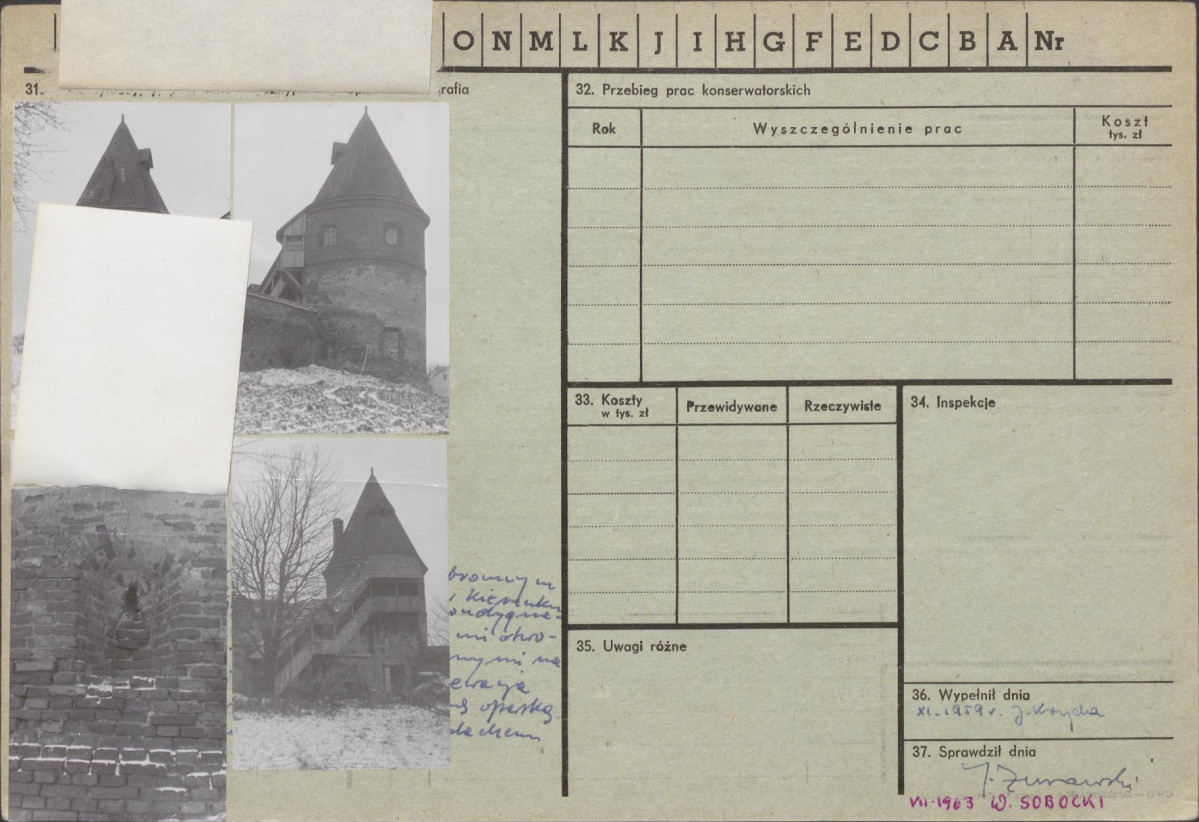 O N M L K J I H G F E D C B A Nr
31.
rafia
32. Przebieg prac konserwatorskich
Rok
Wyszczególnienie prac
Koszt
tys. zł
33. Koszty
w tys. zł
Przewidywane
Rzeczywiste
34. Inspekcje
bronnym
kierunku
ondygna-
mi otwo-
nymi na
ewacja
opaską
dachem
35. Uwagi różne
36. Wypełnił dnia
XI. 1959 r. J. Krycha
37. Sprawdził dnia
J. Żurawski
VII-1963 W. SOBOCKI